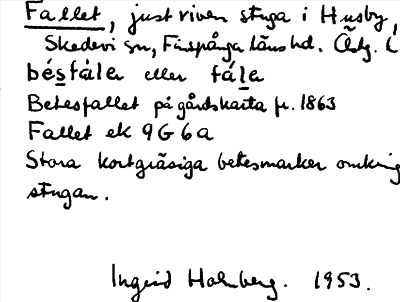 Fallet, just riven stuga i Husby,
Skedevi sn, Finspånga läns hd. Östg. L
béstále̱r eller fále̱
Betesfallet på gårdskarta fr. 1863
Fallet ek 9G6a
Stora kortgräsiga betesmarker omkring
stugan.
Ingrid Holmberg. 1953.